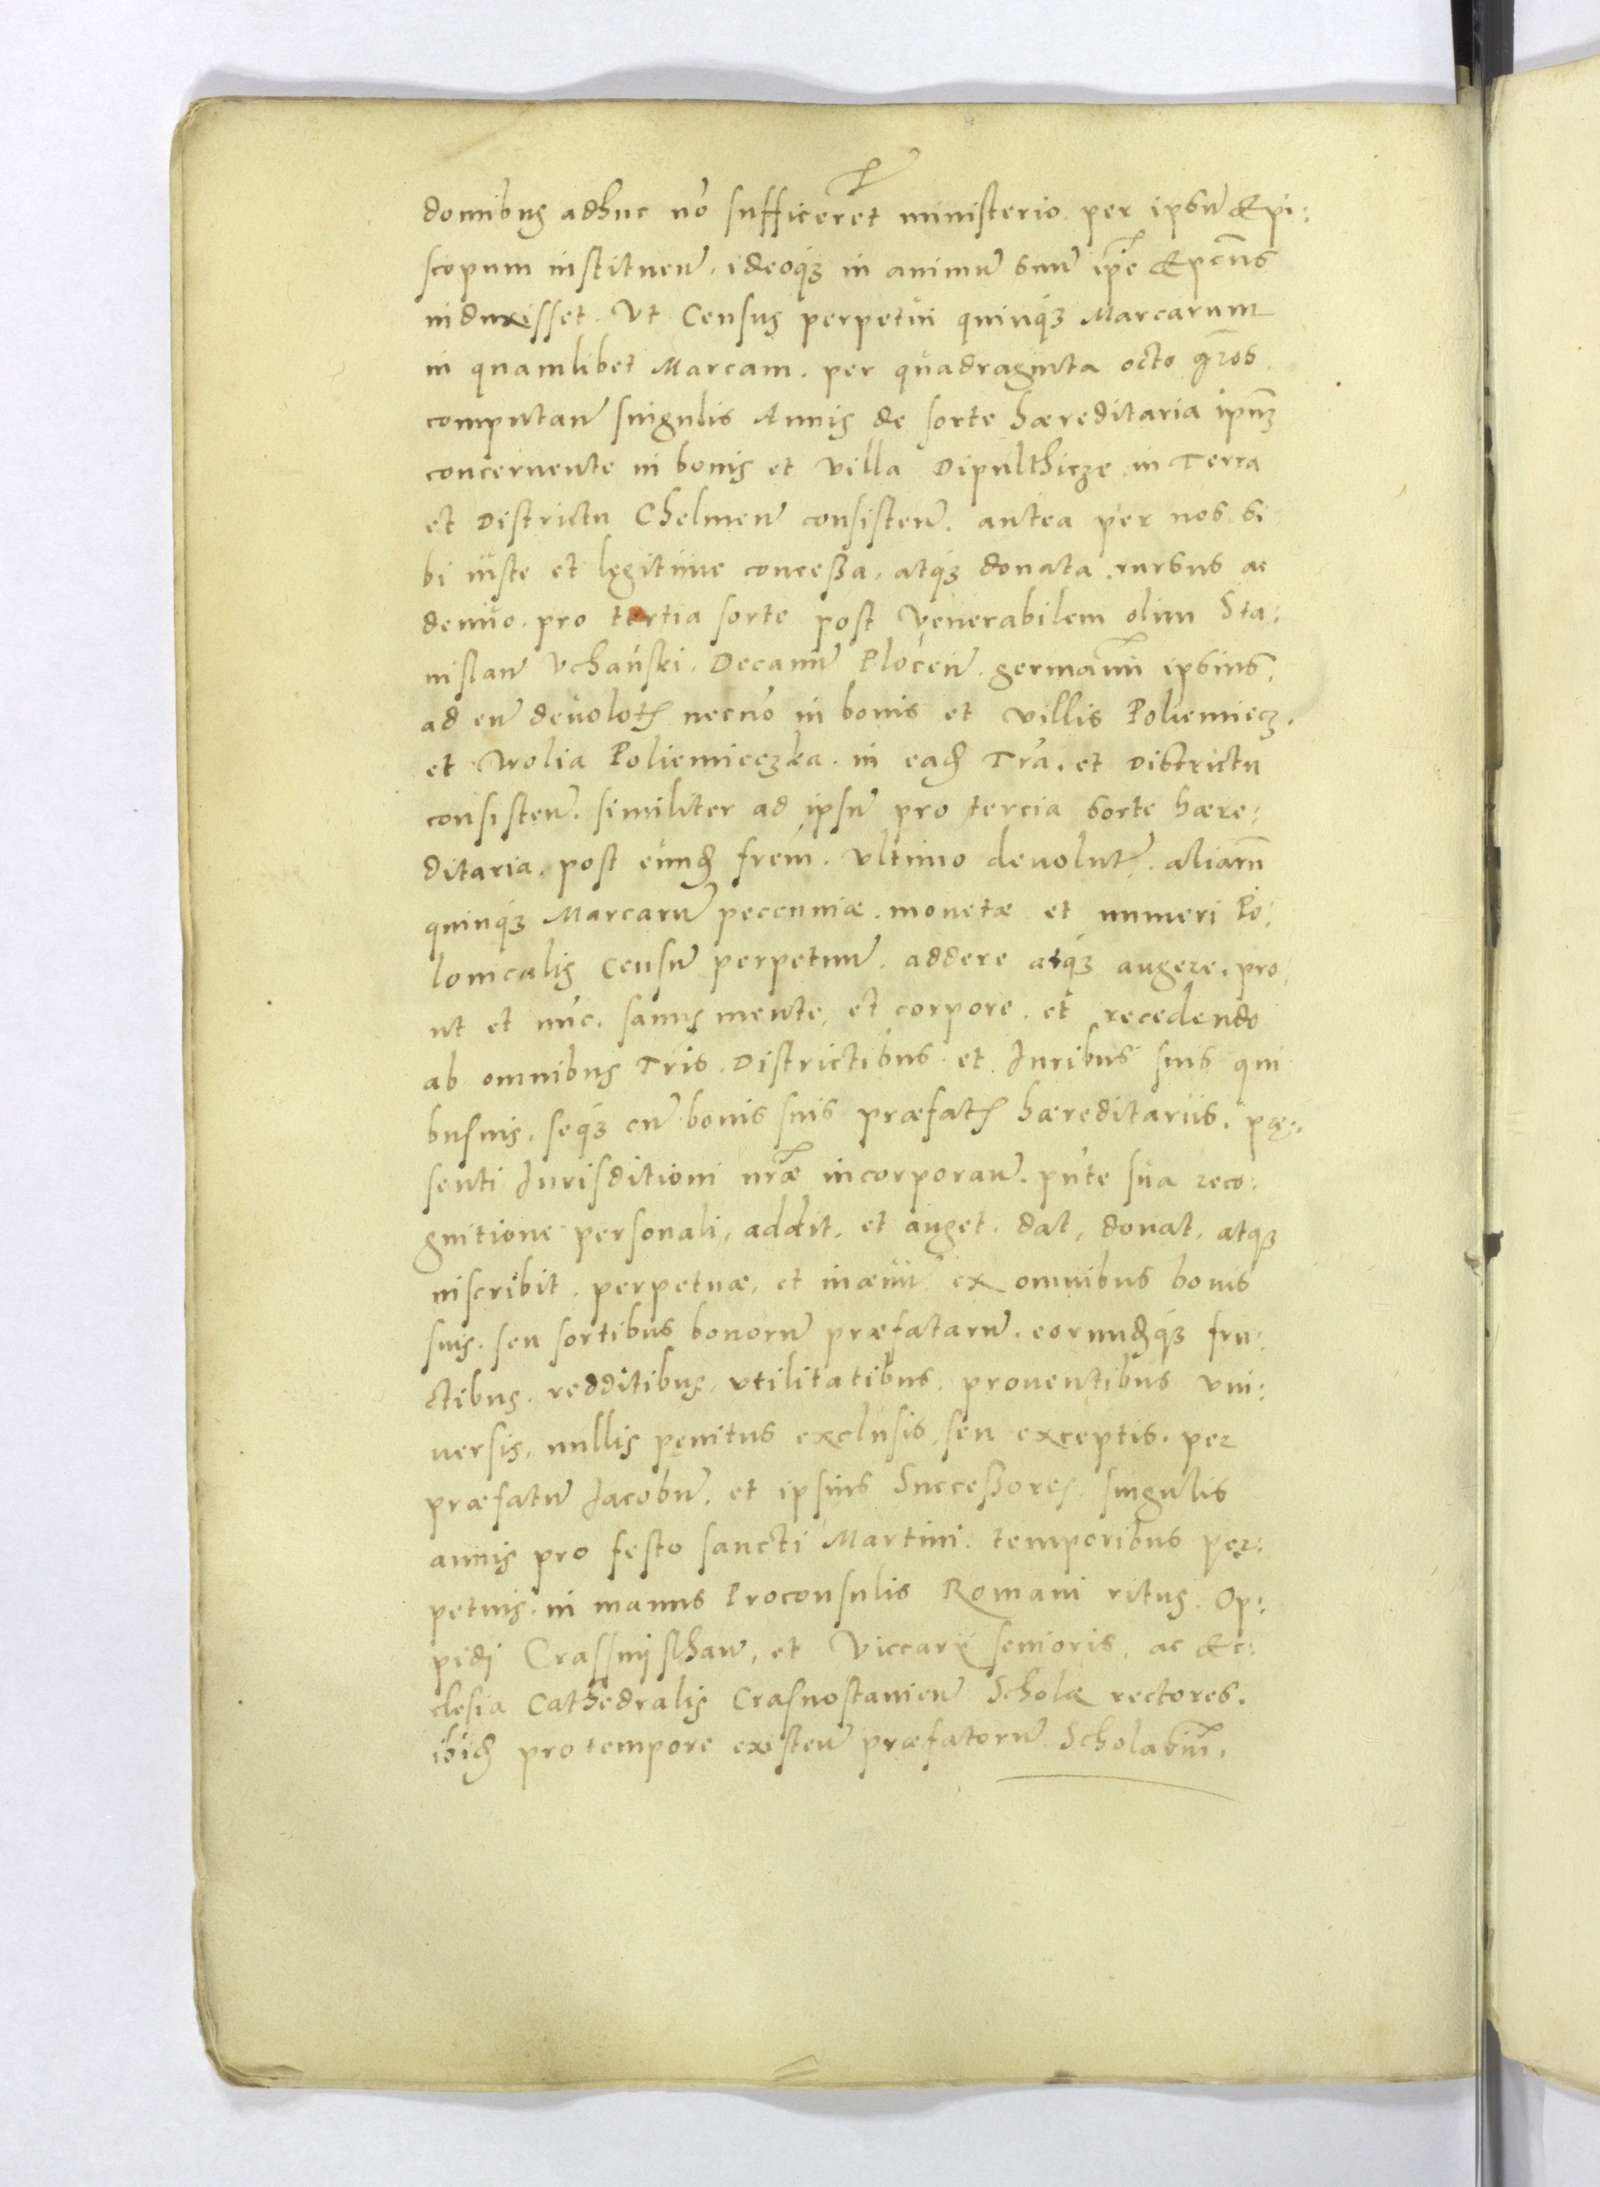 domibus adhuc nō sufficeret ministerio per ipsum Epi:
scopum instituen̄. ideoq́ꝫ in animū suū ip̄e Epc̄us
induxisset. Vt Census perpetui quinq́ꝫ Marcarum
in quamlibet Marcam. per quadraginta octo gr̄os
computan̄ singulis Annis de sorte hæreditaria ipm̄
concernente in bonis et villa Dipulthicze in Terra
et Districtu Chelmen̄ consisten̄. antea per nos si
bi iuste et legitime concessa, atq́ꝫ donata, rursus ac
denuo. pro tertia sorte post Venerabilem olim Sta:
nislaū Vchański. Decanū Plocen̄. germanū ipsius,
ad eū deuolut̄ necnō in bonis et villis Poliemiecz.
et Wolia Poliemieczka. in ead̄ Trā. et Districtu
consisten̄. similiter ad ipsū pro tercia sorte hære:
ditaria. post eund̄ frēm. vltimo deuolut̄. aliarū
quinq́ꝫ Marcarū peccuniæ. monetæ et numeri Po:
lonicalis Censū perpetuū. addere atq́ꝫ augere. pro
ut et nūc. sanus mente, et corpore. et recedendo
ab omnibus Trīs. Districtibus et Iuribus suis qui
busuis. seq́ꝫ cū bonis suis præfat̄ hæreditariis. præ:
senti Iurisditioni nr̄æ incorporan̄. pn̄te sua reco:
gnitione personali, addit. et auget. dat, donat, atqꝫ
inscribit. perpetuæ, et in æuū ex omnibus bonis
suis. seu sortibus bonorū præfatarū. eorund̄q́ꝫ fru:
ctibus. redditibus, vtilitatibus. prouentibus vni:
uersis, nullis penitus exclusis, seu exceptis. per
præfatū Iacobū. et ipsius Successores. singulis
annis pro festo sancti Martini. temporibus per:
petuis. in manus Proconsulis Romani ritus. Op:
pidi Crassnijsthaw, et Viccarij senioris, ac Ec:
clesia Cathedralis Crasnostauien̄ Scholæ rectores.
ibid̄ pro tempore existen̄ præfatorū Scholariū.